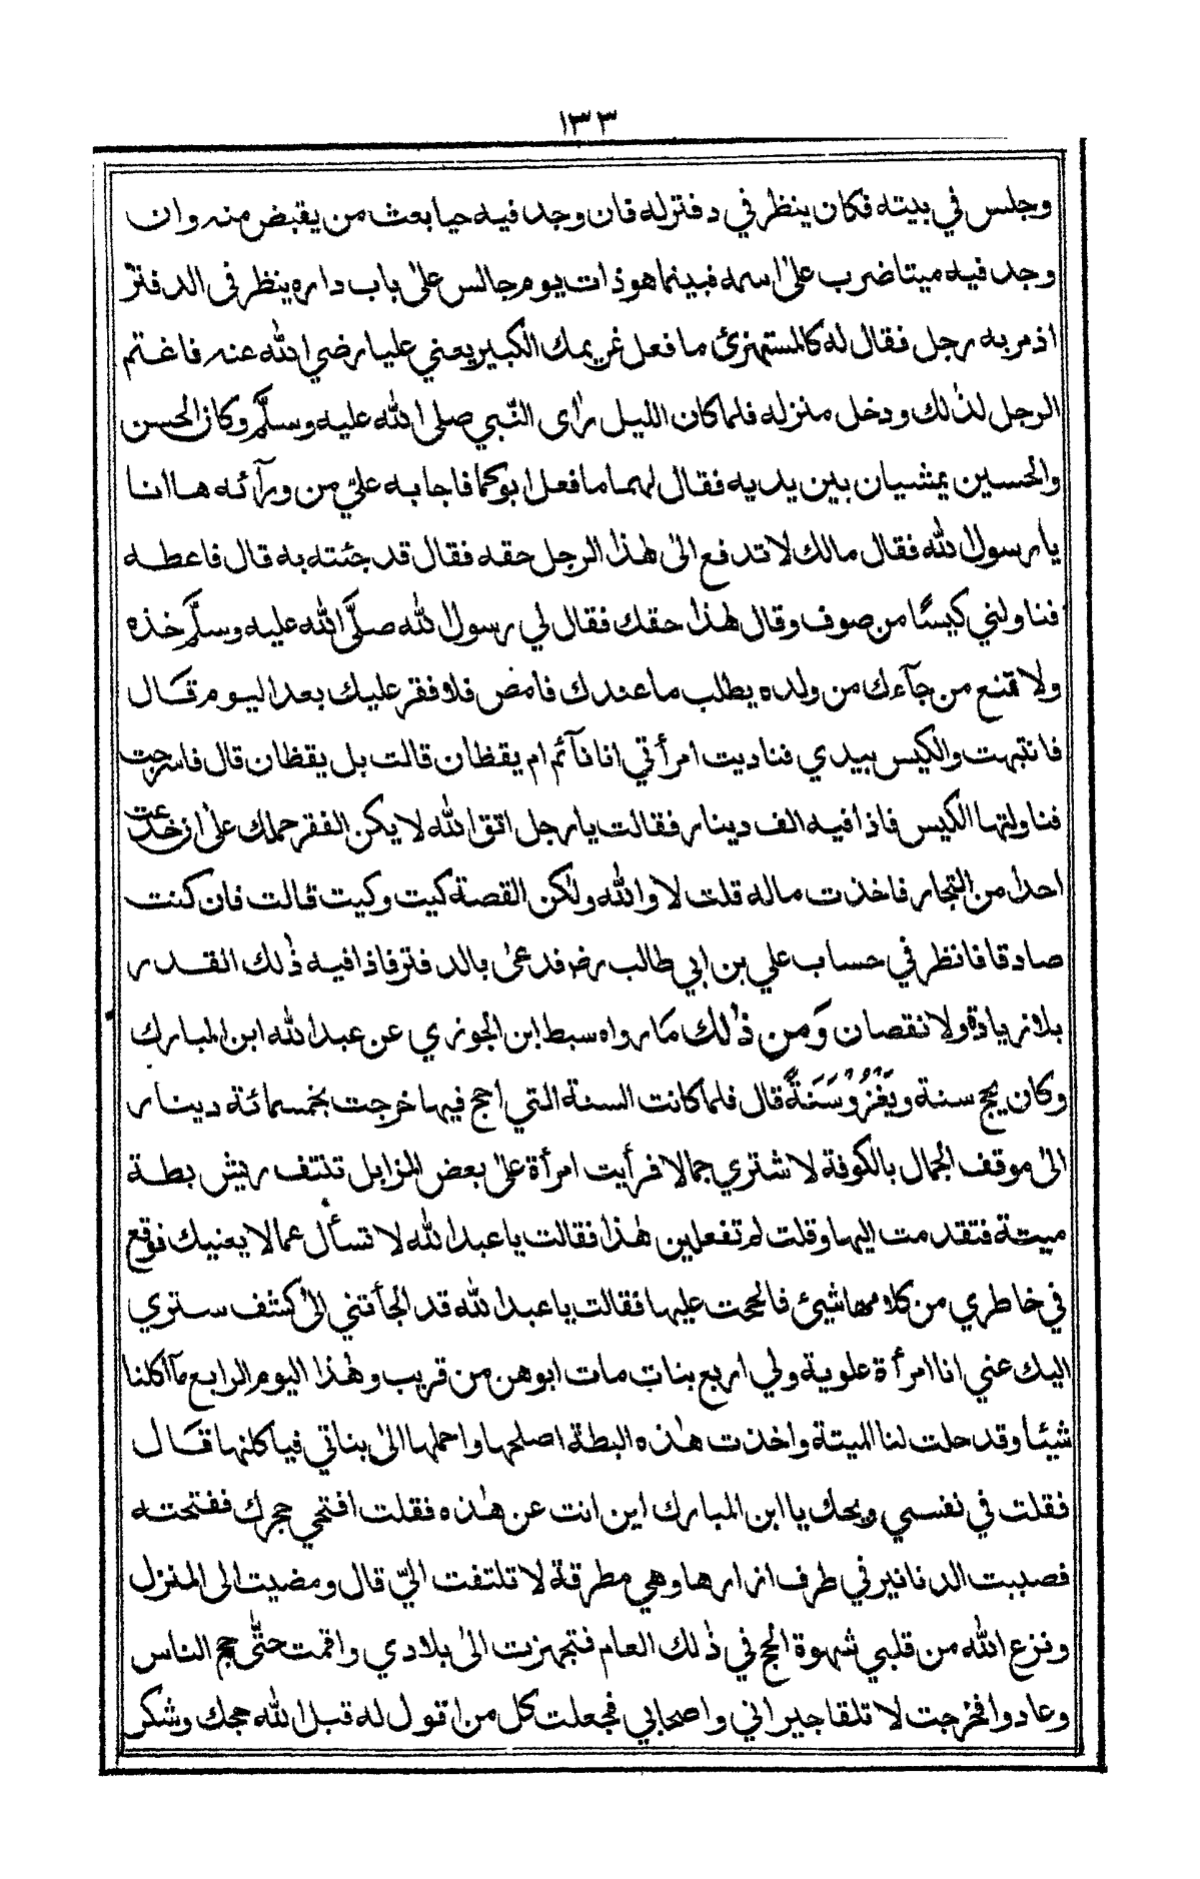 ١٣٣
وجلس في بيته فكان ينظر في دفتر له فان وجد فيه حيا بعث من يقبض منه وان
وجد فيه ميتا ضرب على اسمه فبينما هو ذات يوم جالس على باب داره ينظر فى الدفتر
اذ مر به رجل فقال له كالمستهزئ ما فعل غريمك الكبير يعني عليا رضي الله عنه فاغتم
الرجل لذلك ودخل منزله فلما كان الليل رأى النبي صلى الله عليه وسلم وكان الحسن
والحسين يمشيان بين يديه فقال لهما ما فعل ابوكما فاجابه علي من ورآئه ها انا
يا رسول الله فقال مالك لا تدفع الى هذا الرجل حقه فقال قد جئته به قال فاعطه
فناولني كيسًا من صوف وقال هذا حقك فقال لي رسول الله صلَّى الله عليه وسلَّم خذه
ولا تمنع من جآءك من ولده يطلب ما عندك فامض فلا فقر عليك بعد اليوم قال
فانتبهت والكيس بيدي فناديت امرأتي انا نآئم ام يقظان قالت بل يقظان قال فاسرجت
فناولتها الكيس فاذا فيه الف دينار فقالت يا رجل اتق الله لا يكن الفقر حملك على ان خدعت
احدا من التجار فاخذت ماله قلت لا والله ولكن القصة كيت وكيت قالت فان كنت
صادقا فانظر في حساب علي بن ابي طالب رضه فدعى بالدفتر فاذا فيه ذلك القدر
بلا زيادة ولا نقصان وَمن ذلك مَا رواه سبط ابن الجوزي عن عبد الله ابن المبارك
وكان يحج سنة ويَغْزُو سَنَةً قال فلما كانت السنة التي احج فيها خرجت بخمسمائة دينار
الى موقف الجمال بالكوفة لاشتري جمالا فرأيت امرأة على بعض المزابل تنتف ريش بطة
ميتة فتقدمت اليها وقلت لم تفعلين هذا فقالت يا عبد الله لا تسأل عما لا يعنيك فوقع
في خاطري من كلامها شيئ فالححت عليها فقالت يا عبد الله قد الجأتني الى كشف ستري
اليك عني انا امرأة علوية ولي اربع بنات مات ابوهن من قريب وهذا اليوم الرابع مآ اكلنا
شيئا وقد حلت لنا الميتة واخذت هذه البطة اصلحها واحملها الى بناتي فيأكلنها قَال
فقلت في نفسي ويحك يا ابن المبارك اين انت عن هذه فقلت افتحي حجرك ففتحته
فصببت الدنانير في طرف ازارها وهي مطرقة لا تلتفت اليّ قال ومضيت الى المنزل
ونزع الله من قلبي شهوة الحج في ذلك العام فتجهزت الى بلادي واقمت حتَّى حج الناس
وعادوا فخرجت لا تلقا جيراني واصحابي فجعلت كل من اقول له قبل الله حجك وشكر